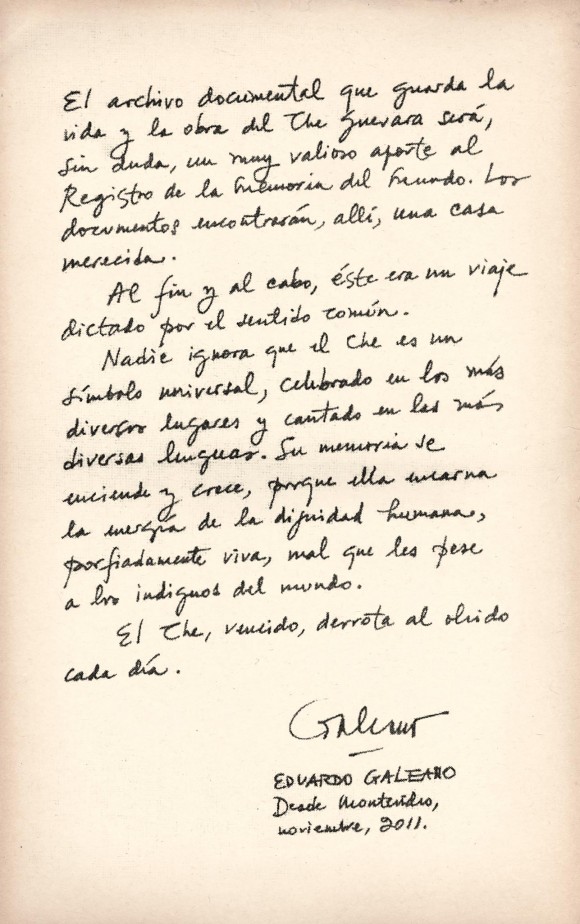 El archivo documental que guarda la
vida y la obra del Che Guevara será,
sin duda, un muy valioso aporte al
Registro de la Memoria del Mundo. Los
documentos encontrarán, allí, una casa
merecida.
Al fin y al cabo, éste era un viaje
dictado por el sentido común.
Nadie ignora que el Che es un
símbolo universal, celebrado en los más
diversos lugares y cantado en las más
diversas lenguas. Su memoria se
enciende y crece, porque ella encarna
la energía de la dignidad humana,
porfiadamente viva, mal que les pese
a los indignos del mundo.
El Che, vencido, derrota al olvido
cada día.
Galeano
EDUARDO GALEANO
Desde Montevideo,
noviembre, 2011.